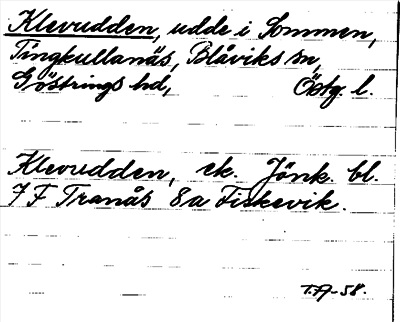 Klevudden, udde i Sommen,
Tingkullanäs, Blåviks sn,
Göstrings hd, Östg. l.
Klevudden, ek. Jönk. bl.
7 F Tranås 8a Fiskevik.
-58.